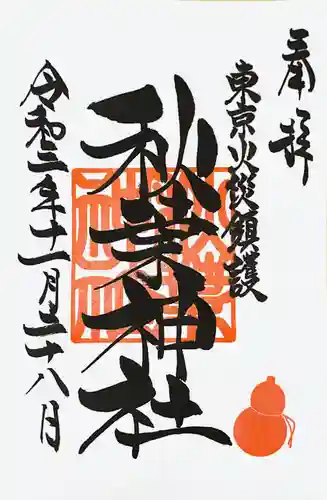 奉拝
東京火災鎮護
秋葉神社
令和二年十一月二十八日